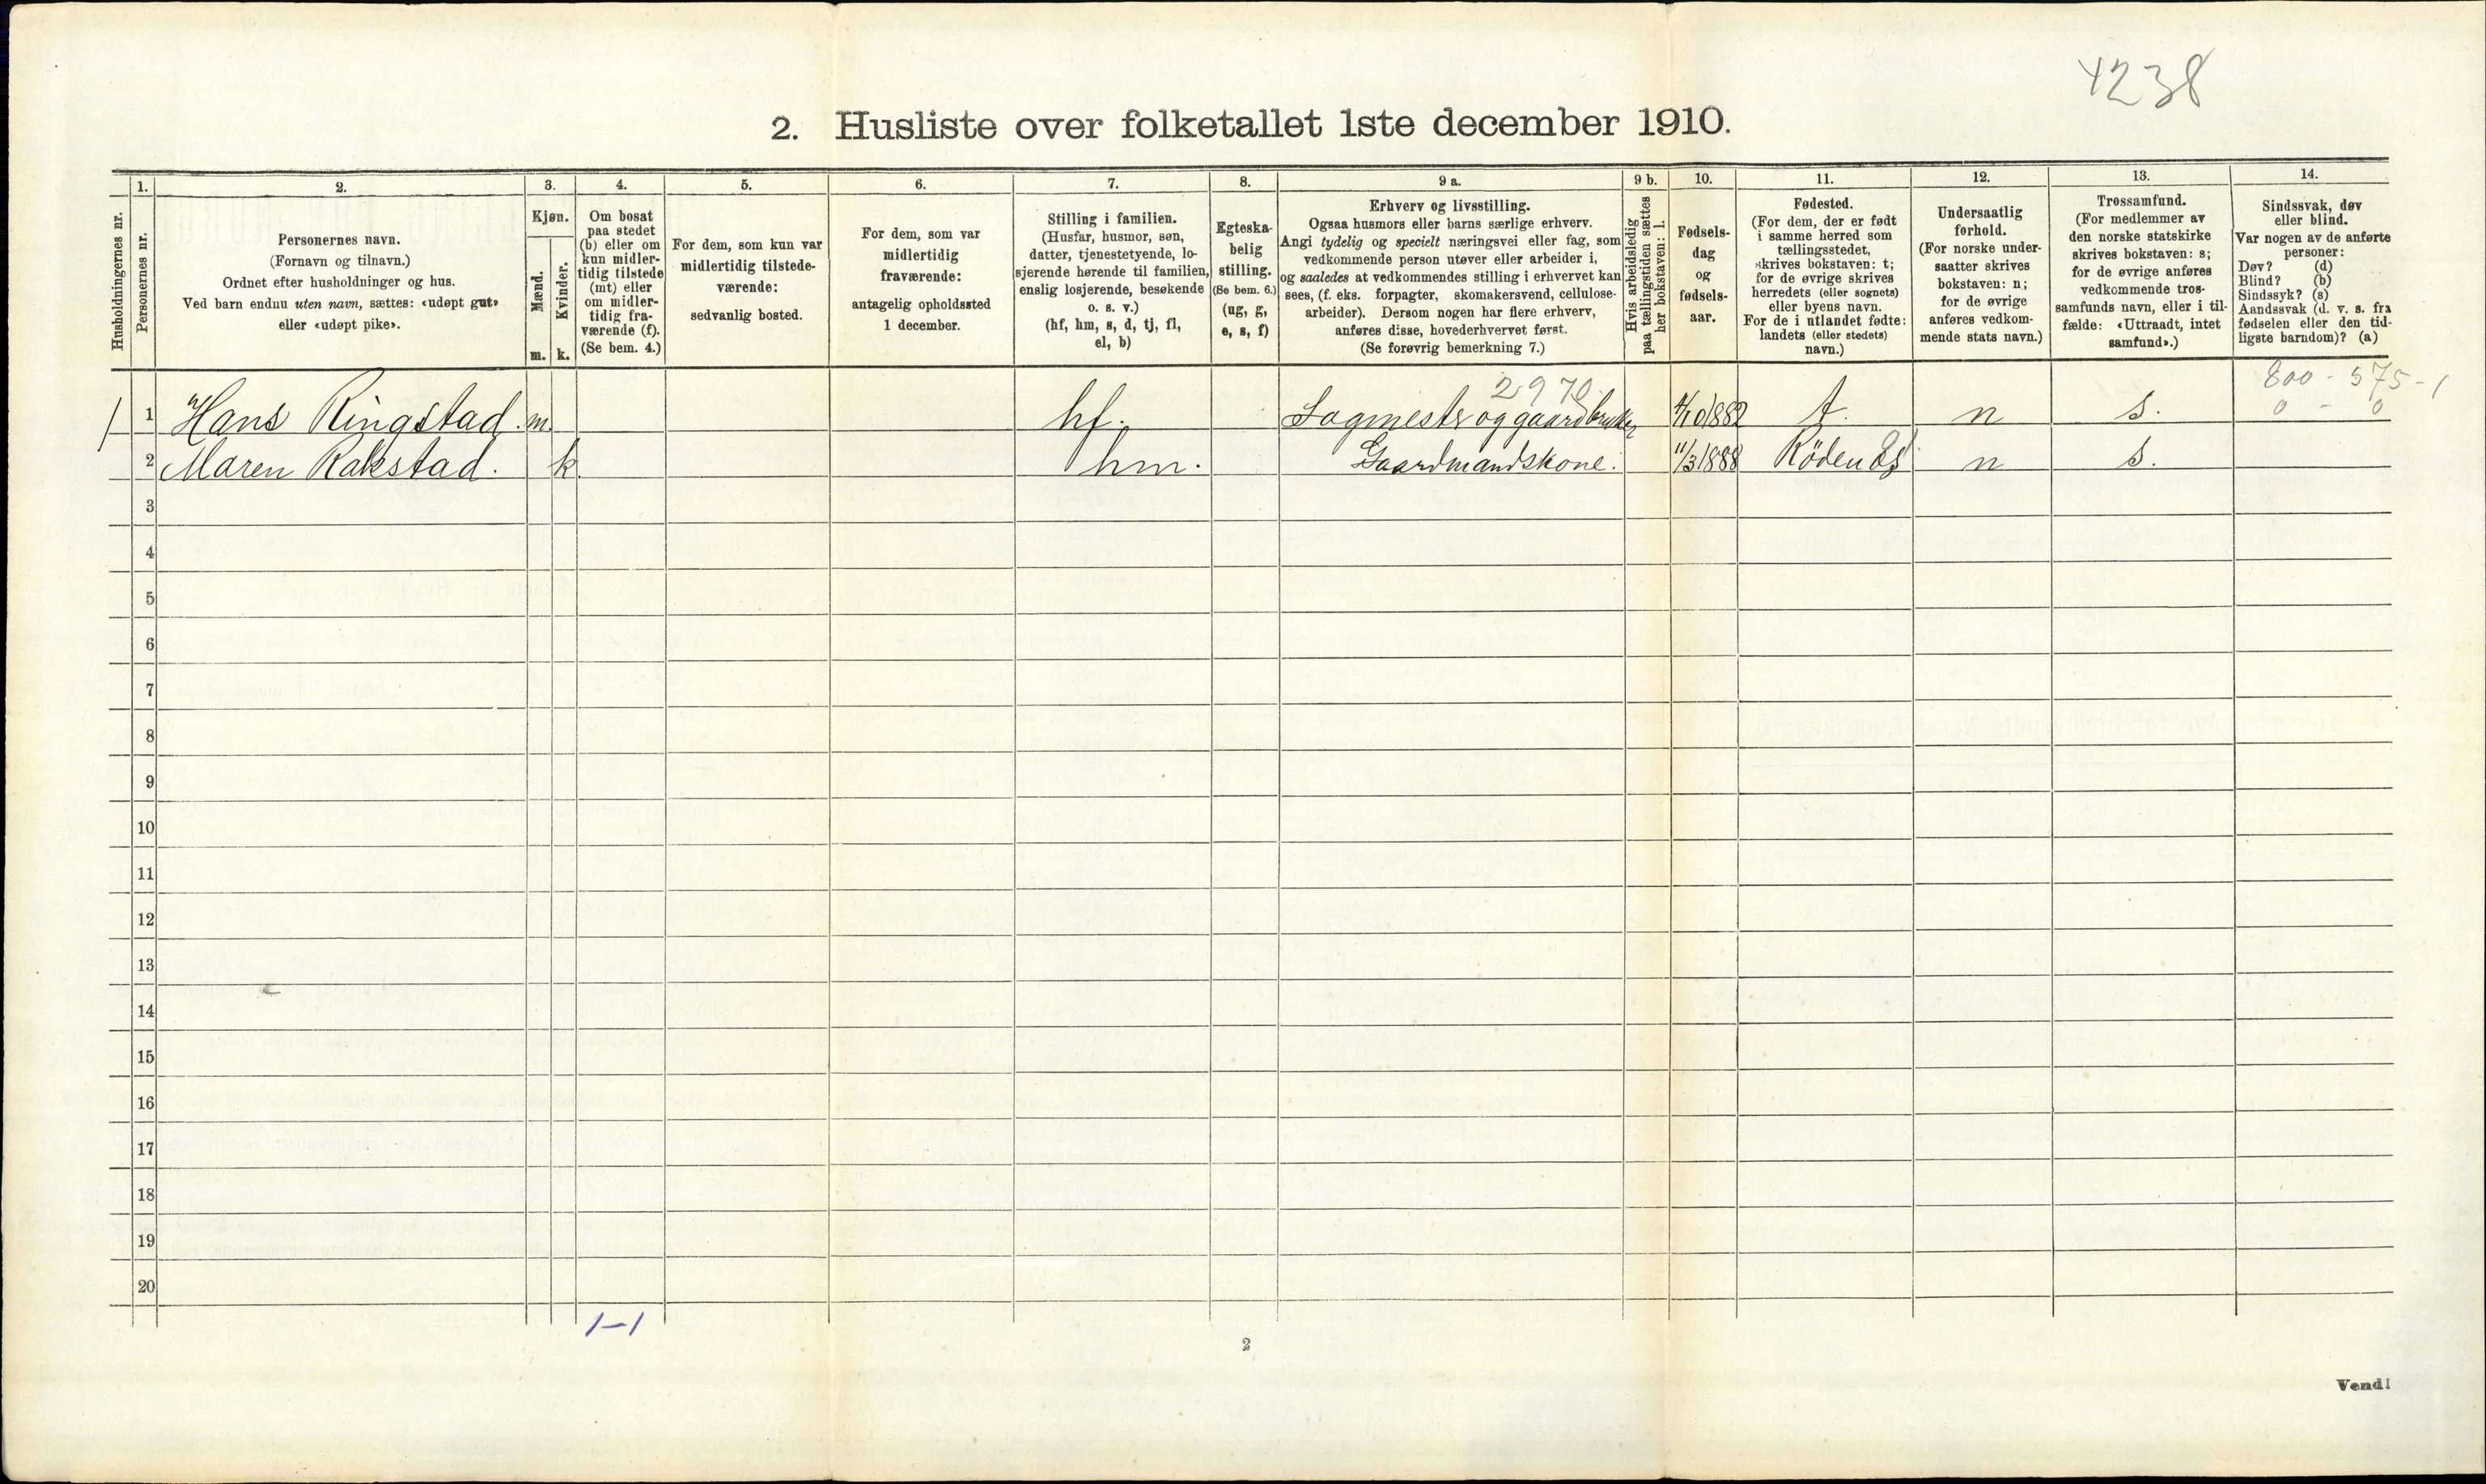 4238
2. Husliste over folketallet 1ste december 1910.
Husholdningernes nr.
1.
Personernes nr.
2.
Personernes navn.
(Fornavn og tilnavn.)
Ordnet efter husholdninger og hus.
Ved barn endnu uten navn, sættes: «udøpt gut»
eller «udøpt pike».
3.
Kjøn.
Mænd.
Kvinder.
m. k.
4.
Om bosat
paa stedet
(b) eller om
kun midler-
tidig tilstede
(mt) eller
om midler-
tidig fra-
værende (f).
(Se bem. 4.)
5.
For dem, som kun var
midlertidig tilstede-
værende:
sedvanlig bosted.
6.
For dem, som var
midlertidig
fraværende:
antagelig opholdssted
1 december.
7.
Stilling i familien.
(Husfar, husmor, søn,
datter, tjenestetyende, lo-
sjerende hørende til familien,
enslig losjerende, besøkende
o. s. v.)
(hf, hm, s, d, tj, fl,
el, b)
8.
Egteska-
belig
stilling.
(Se bem. 6.)
(ug, g,
e, s, f)
9 a.
Erhverv og livsstilling.
Ogsaa husmors eller barns særlige erhverv.
Angi tydelig og specielt næringsvei eller fag, som
vedkommende person utøver eller arbeider i,
og saaledes at vedkommendes stilling i erhvervet kan
sees, (f. eks. forpagter, skomakersvend, cellulose-
arbeider). Dersom nogen har flere erhverv,
anføres disse, hovederhvervet først.
(Se forøvrig bemerkning 7.)
9 b.
Hvis arbeidsledig
paa tællingstiden sættes
her bokstaven: l.
10.
Fødsels-
dag
og
fødsels-
aar.
11.
Fødested.
(For dem, der er født
i samme herred som
tællingsstedet,
skrives bokstaven: t;
for de øvrige skrives
herredets (eller sognets)
eller byens navn.
For de i utlandet fødte:
landets (eller stedets)
navn.)
12.
Undersaatlig
forhold.
(For norske under-
saatter skrives
bokstaven: n;
for de øvrige
anføres vedkom-
mende stats navn.)
13.
Trossamfund.
(For medlemmer av
den norske statskirke
skrives bokstaven: s;
for de øvrige anføres
vedkommende tros-
samfunds navn, eller i til-
fælde: «Uttraadt, intet
samfund».)
14.
Sindssvak, døv
eller blind.
Var nogen av de anførte
personer:
Døv? (d)
Blind? (b)
Sindssyk? (s)
Aandssvak (d. v. s. fra
fødselen eller den tid-
ligste barndom)? (a)
2970
800 - 575 - 1
0 - 0
1 Hans Ringstad. m. hf. Sagmester og gaardbruker 4/10 1882 t. n s.
2 Maren Rakstad. k. hm. Gaardmandskone. 11/3 1888 Rödenes n s.
3
4
5
6
7
8
9
10
11
12
13
14
15
16
17
18
19
20
1-1
2
Vend!